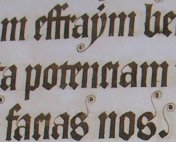 m effraÿm be
ta potenciam
facias nos.